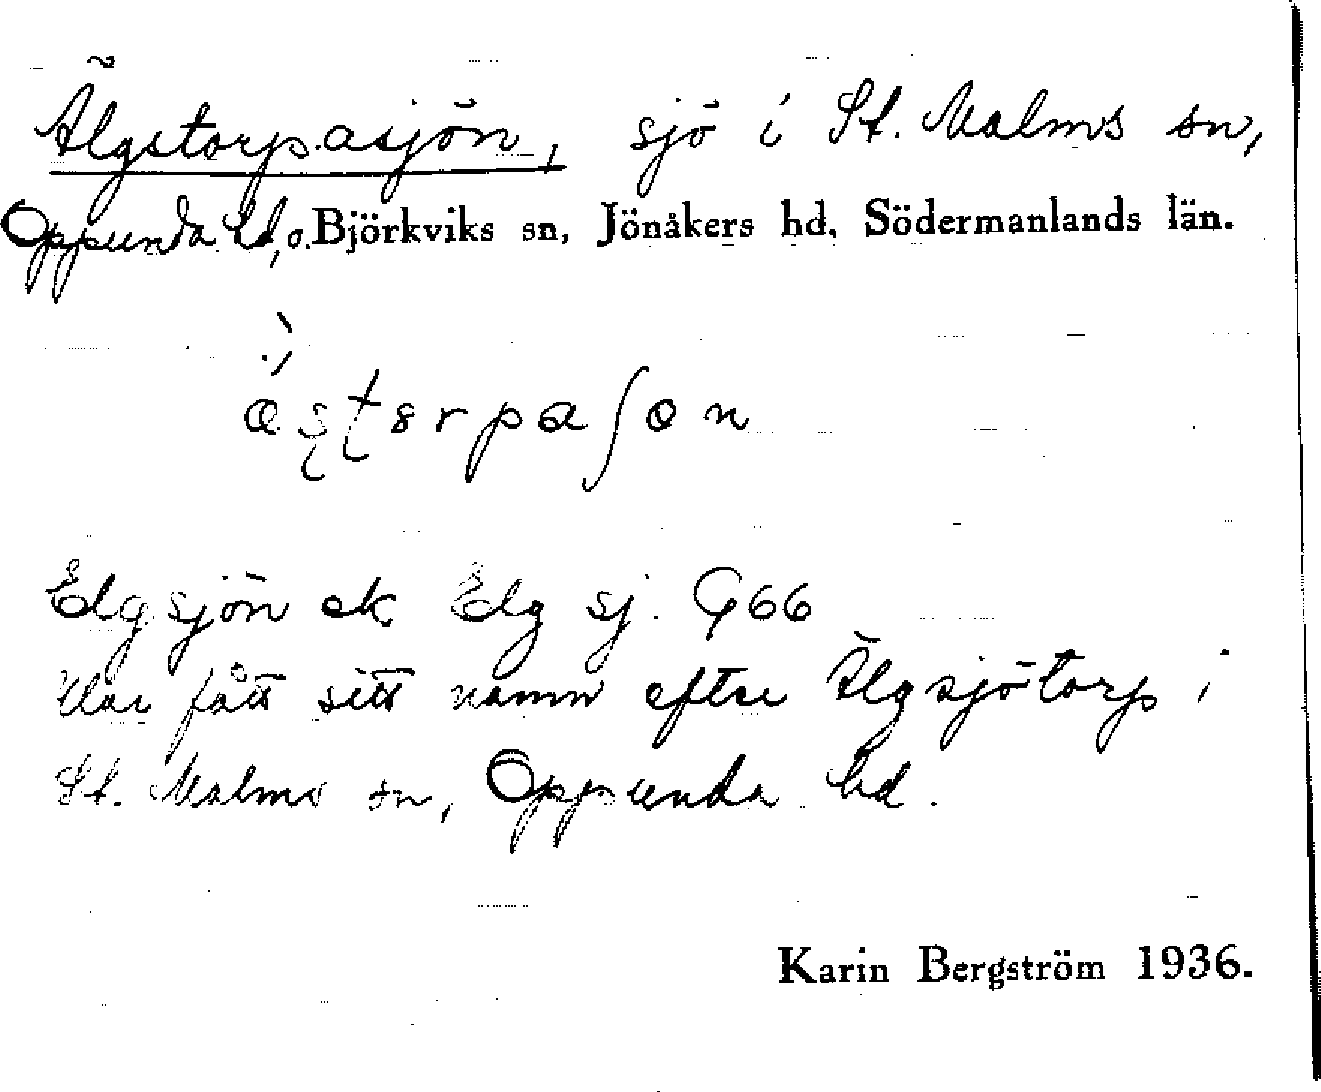 Älgstorpasjön, sjö i St. Malms sn,
Oppunda hd, o. Björkviks sn, Jönåkers hd, Södermanlands län.
Elgsjön ek Elg sj. G66
Har fått sitt namn efter Älgsjötorp i
St. Malms sn, Oppunda hd.
Karin Bergström 1936.